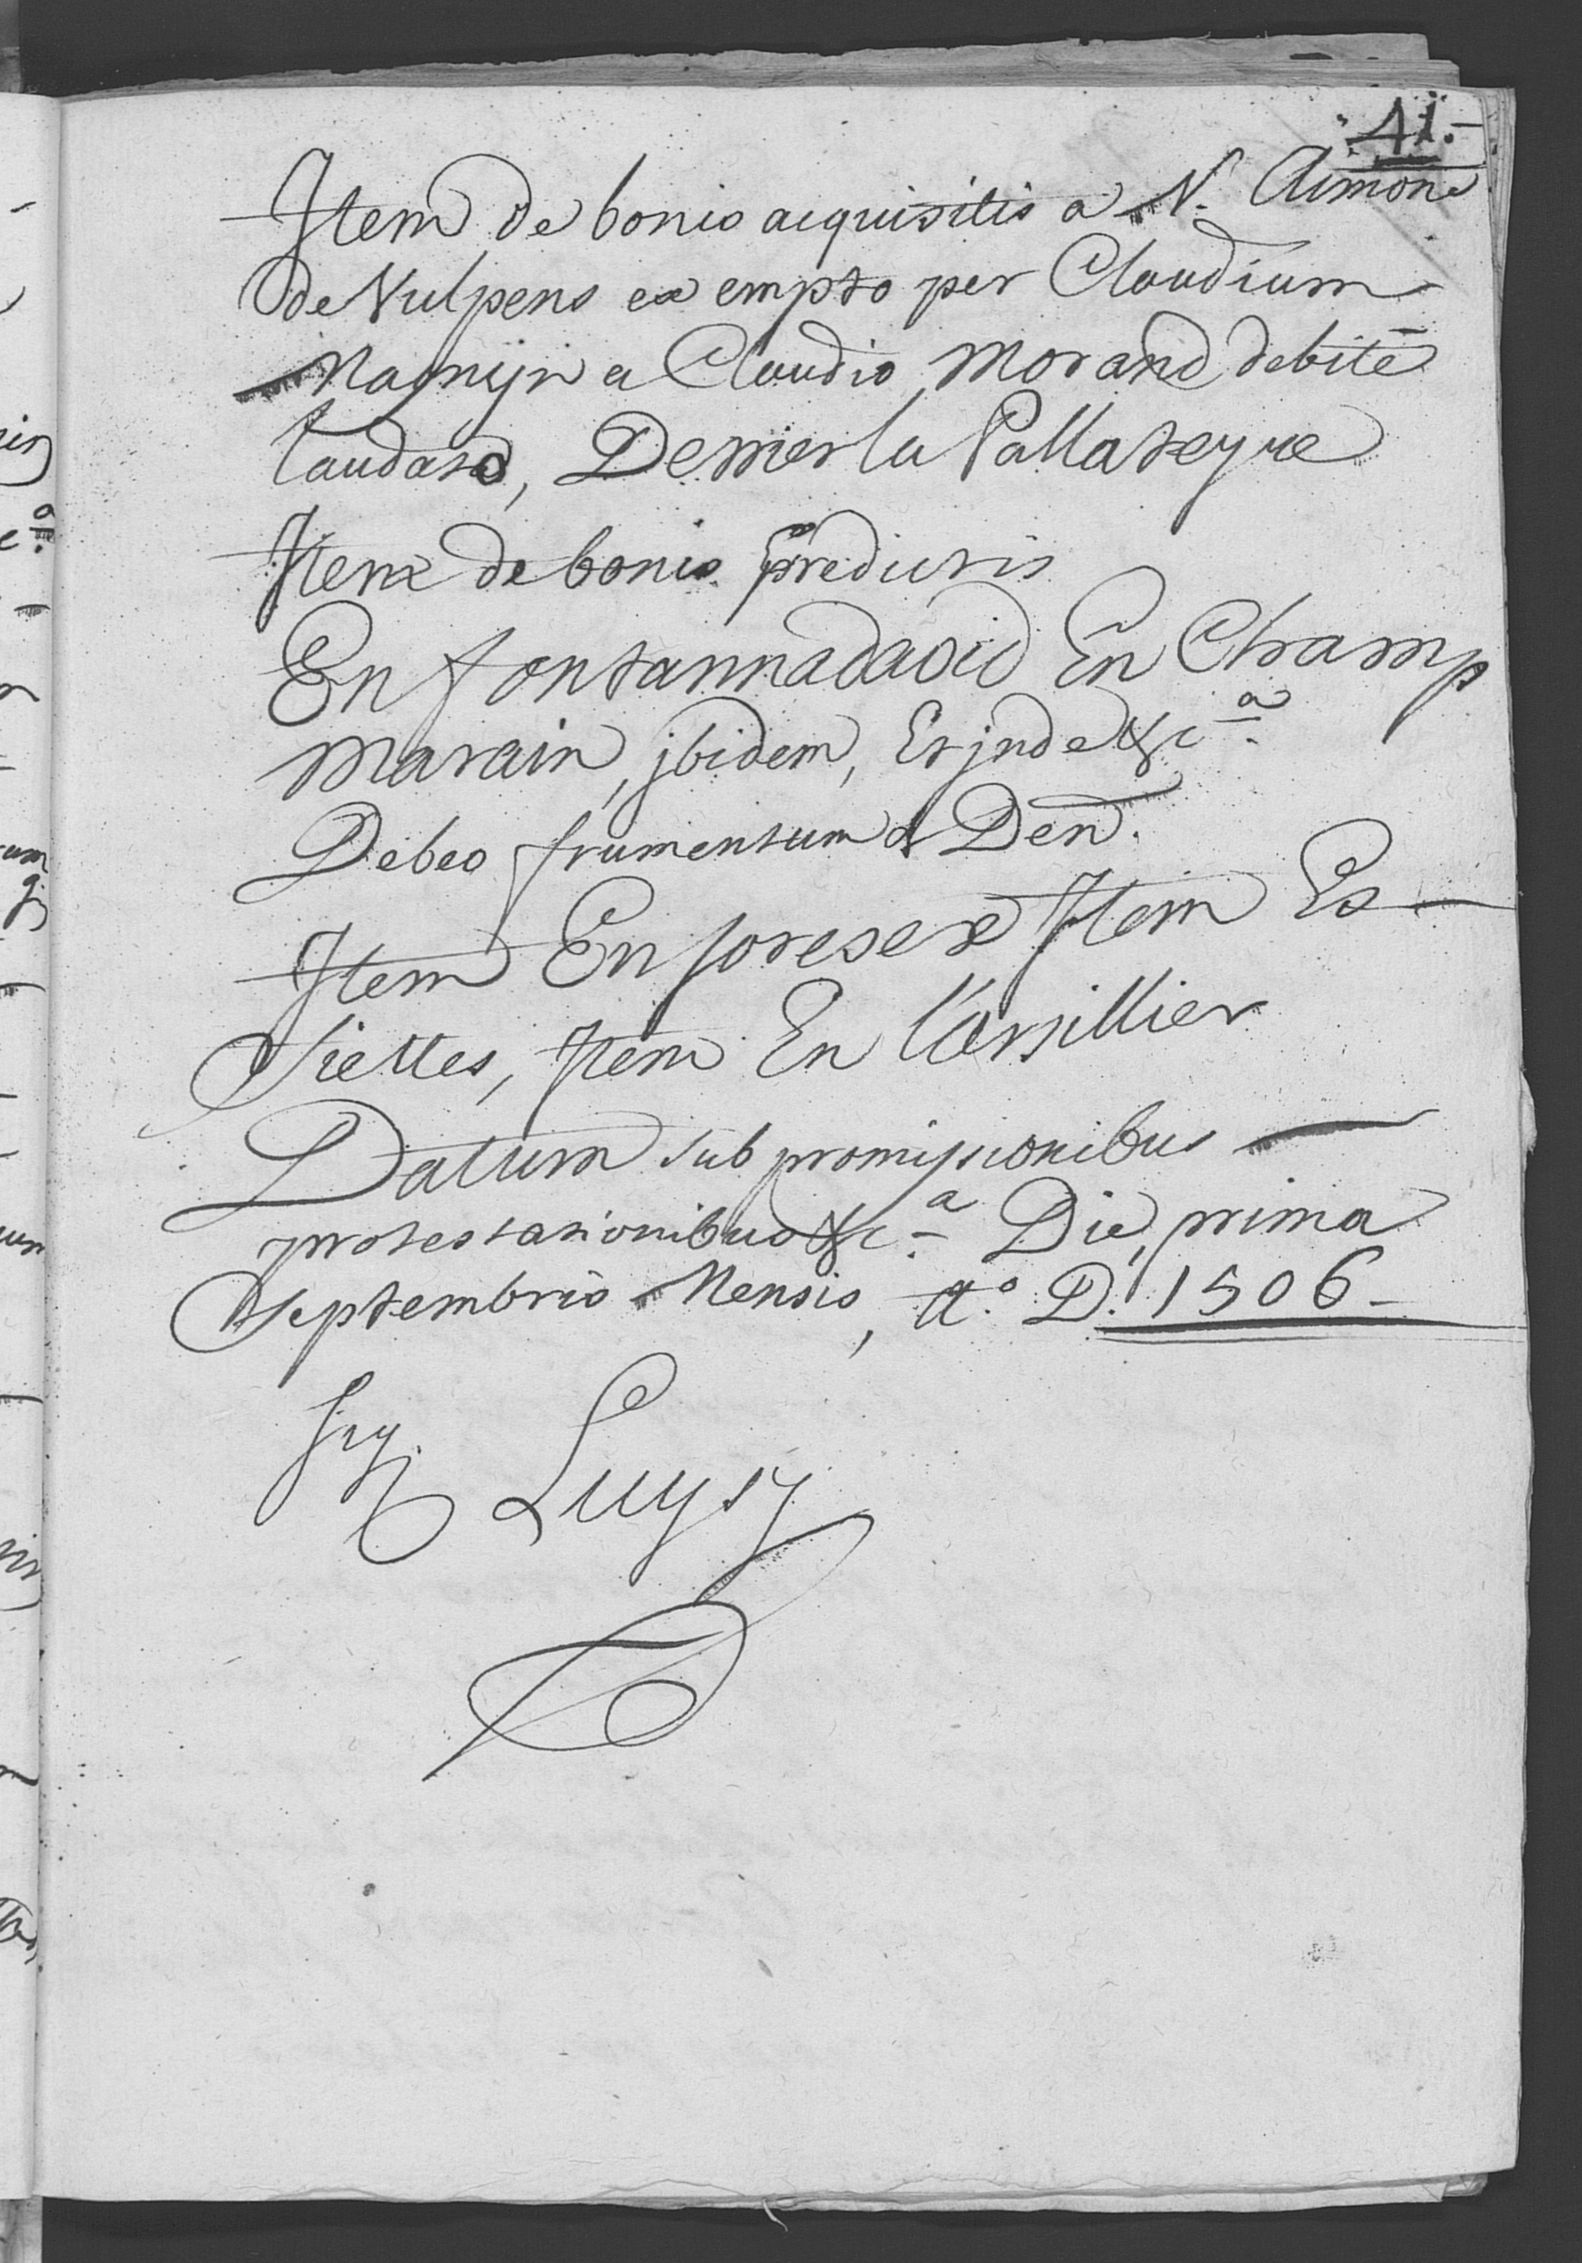 41.
Item de bonis acquisitis a N. Aimone
de Vulpens ex empto per Claudium
Magnyn a Claudio Morand debitè
laudato, Derrier la Pallateyre
Item de bonis predictis
En fontannadavid En Champ
Marain, jbidem, Et jnde &c.a
Debeo frumentum & Den.
Item En foreser Item Es
Siettes, Item En l'arsillier
Datum sub promissionibus
protestationibus &c.a Die, prima
Septembris Mensis, A.o D. 1506
Sig. Luysy